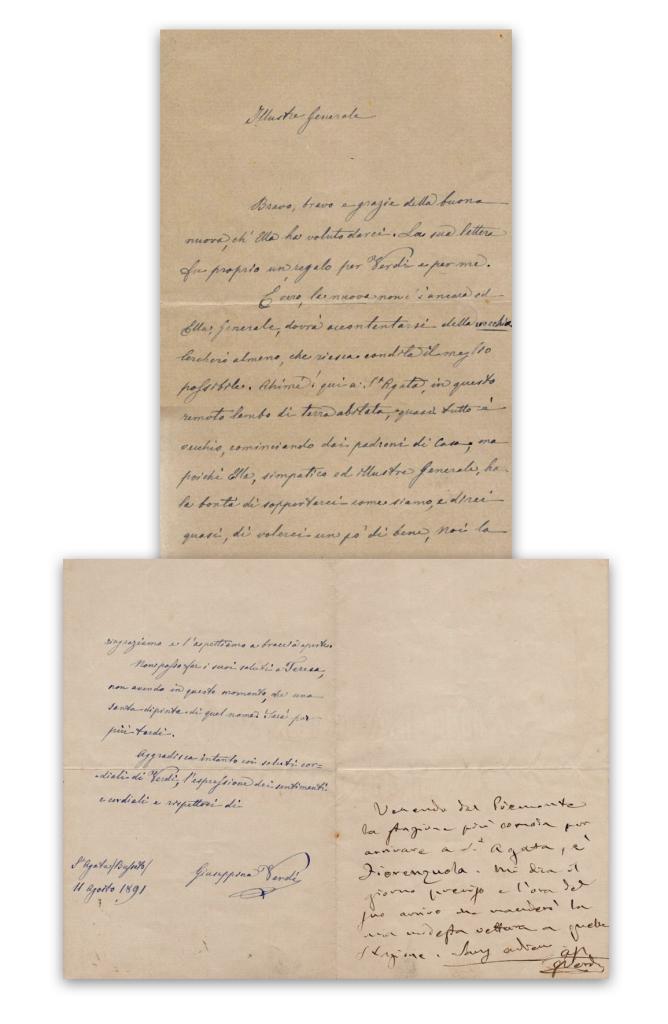 Illustre Generale
Bravo, bravo e grazie della buona
nuova, ch' Ella ha voluto darci. La sua lettera
fu proprio un regalo per Verdi e per me.
È vero, la nuova non c'è ancora ed
Ella, Generale, dovrà accontentarsi della vecchia.
Cercherò almeno, che riesca condita il meglio
possibile. Ahimè! qui a St Agata, in questo
remoto lembo di terra abitata, quasi tutto è
vecchio, cominciando dai padroni di Casa, ma
poichè Ella, simpatico ed illustre Generale, ha
la bontà di sopportarci come siamo, e direi
quasi, di volerci un pò di bene, noi la
ringraziamo e l'aspettiamo a braccia aperte.
Non posso far i suoi saluti a Teresa,
non avendo in questo momento, che una
santa dipinta di quel nome! Sarà per
più tardi.
Aggradisca intanto coi saluti cor-
diali di Verdi, l'espressione dei sentimenti
cordiali e rispettosi di
Giuseppina Verdi
St Agata (Busseto)
11 Agosto 1891
Venendo dal Piemonte
la stazione più comoda per
arrivare a St Agata, è
Fiorenzuola. Mi dica il
giorno preciso e l'ora del
suo arrivo che manderò la
mia modesta vettura a quella
Stazione.
G Verdi